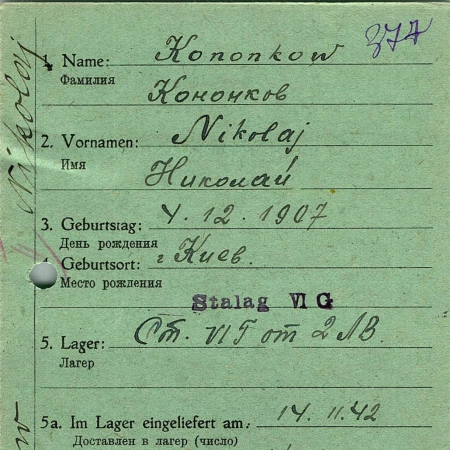 377
1. Name: Kononkow
Фамилия
Кононков
2. Vornamen: Nikolaj
Имя
Николай
3. Geburtstag: 4. 12. 1907
День рождения
4. Geburtsort: г Киев.
Место рождения
Stalag VI G
5. Lager: Ст. VIГ от 2 ЛВ.
Лагер
5a. Im Lager eingeliefert am: 14. 11. 42
Доставлен в лагер (число)
Nikolaj